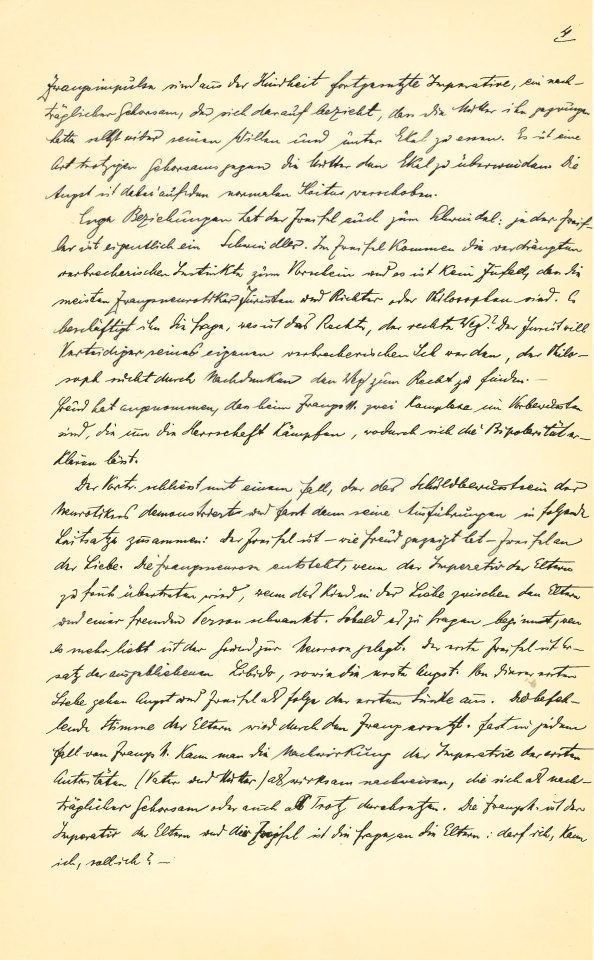 4
Zwangsimpulse sind aus der Kindheit fortgesetzte Imperative, ein nach-
träglicher Gehorsam, der sich darauf bezieht, dass die Mutter ihn gezwungen
hatte selbst wider seinen Willen und unter Ekel zu essen. Es ist eine
Art trotzigen Gehorsams gegen die Mutter den Ekel zu überwinden. Die
Angst ist dabei auf den normalen Koitus verschoben.
Enge Beziehungen hat der Zweifel auch zum Schwindel: jeder Zweif-
ler ist eigentlich ein Schwindler. Im Zweifel kommen die verdrängten
verbrecherischen Instinkte zum Vorschein und es ist kein Zufall, dass die
meisten Zwangsneurotiker Juristen und Richter oder Philosophen sind. Es
beschäftigt ihn die Frage, was ist das Rechte, der rechte Weg? Der Jurist will
Verteidiger seines eigenen verbrecherischen Ich werden, der Philo-
soph sucht durch Nachdenken den Weg zum Recht zu finden. —
Freud hat angenommen, dass beim Zwangsk. zwei Komplexe im Vorbewussten
sind, die um die Herrschaft kämpfen, wodurch sich die Bipolarität er-
klären lässt.
Der Vortr. schliesst mit einem Fall, der das Schuldbewusstsein des
Neurotikers demonstriert und fasst dann seine Ausführungen in folgende
Leitsätze zusammen: der Zweifel ist – wie Freud gezeigt hat – Zweifel an
der Liebe. Die Zwangsneurose entsteht, wenn der Imperativ der Eltern
zu früh übertreten wird, wenn das Kind in der Liebe zwischen den Eltern
und einer fremden Person schwankt. Sobald es zu fragen beginnt, wen
es mehr liebt ist der Grund zur Neurose gelegt. Der erste Zweifel ist Er-
satz der ausgebliebenen Libido, sowie die erste Angst. Von dieser ersten
Liebe gehen Angst und Zweifel als Folge der ersten Sünde aus. Die befeh-
lende Stimme der Eltern wird durch den Zwang ersetzt. Fast in jedem
Fall von Zwangsk. kann man die Nachwirkung der Imperative der ersten
Autoritäten (Vater und Mutter) als wirksam nachweisen, die sich als nach-
träglicher Gehorsam oder auch als Trotz durchsetzen. Die Zwangsk. ist der
Imperativ der Eltern und der Zweifel ist die Frage an die Eltern: darf ich, kann
ich, soll ich? —